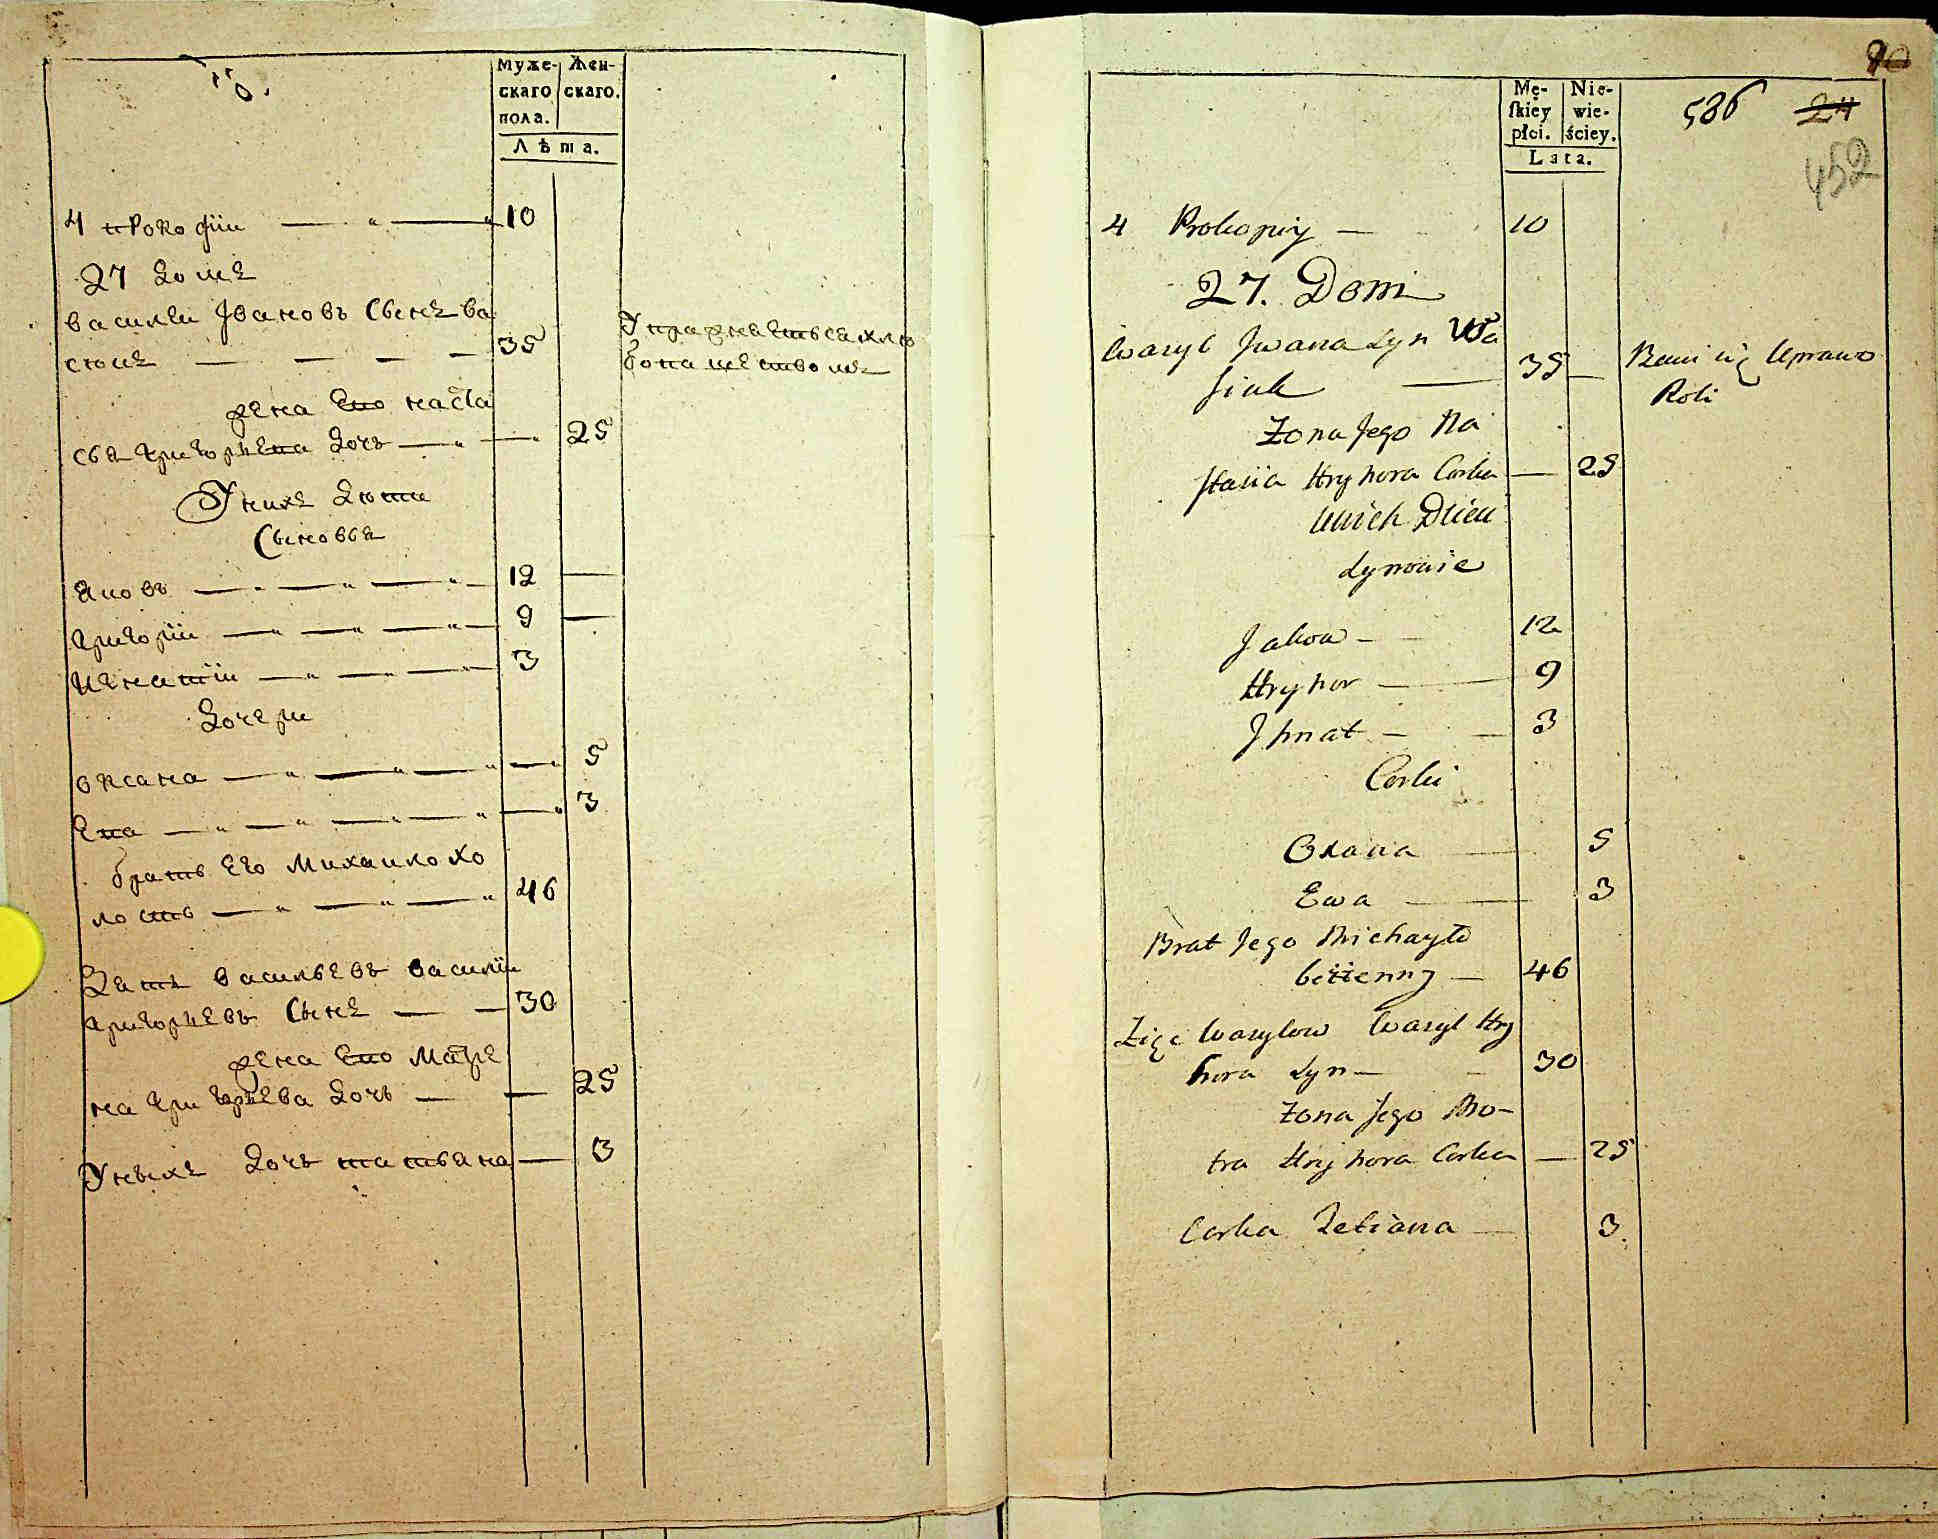 Муже-
скаго
пола.
Жен-
скаго.
Лѣта.
4 прокофiи 10
27 домъ
василеи Iвановъ Сынъ ва
сюкъ 35
Упражняетьсяхле
бопашествомъ
жена Его наста
сья григорьева дочь 25
У нихъ дѣти
Сыновья
яковъ 12
григорiи 9
игнатiи 3
дочери
оксана 5
Ева 3
братъ Его Михаило хо
лостъ 46
Зять васильевъ василiи
григорьевъ Сынъ 30
жена Его Матре
на григорьева дочь 25
У ныхъ дочь татьяна 3
Mę-
skiey
płci.
Nie-
wie-
ściey.
Lata.
586 24
90
452
4 Prokopiy 10
27. Dom
Wasyl Jwana Syn Wa
siuk 35
Bawi się Uprawo
Roli
Zona Jego Na
stasia Hryhora Corka 25
Unich Dzieci
Synowie
Jakow 12
Hryhor 9
Jhnat 3
Corki
Oxana 5
Ewa 3
Brat Jego Michayło
beżżenny 46
Zięc Wasylow Wasyl Hry
hora Syn 30
Zona Jego Mo-
tra Hryhora Corka 25
Corka Tetiana 3